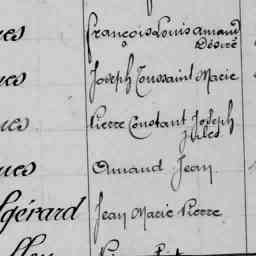 res François Louis Amand
Désiré
ues Joseph Toussaint Marie
ues Pierre Constant Joseph
Jules
ues Amand Jean
gérard Jean Marie Pierre